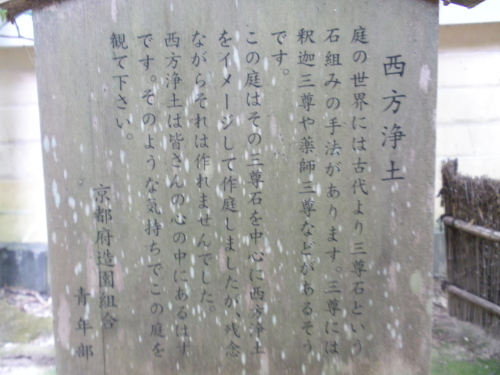 西方浄土
庭の世界には古代より三尊石という
石組みの手法があります。三尊には
釈迦三尊や薬師三尊などがあるそう
です。
この庭はその三尊石を中心に西方浄土
をイメージして作庭しましたが、残念
ながらそれは作れませんでした。
西方浄土は皆さんの心の中にあるはず
です。そのような気持ちでこの庭を
観て下さい。
京都府造園組合
青年部